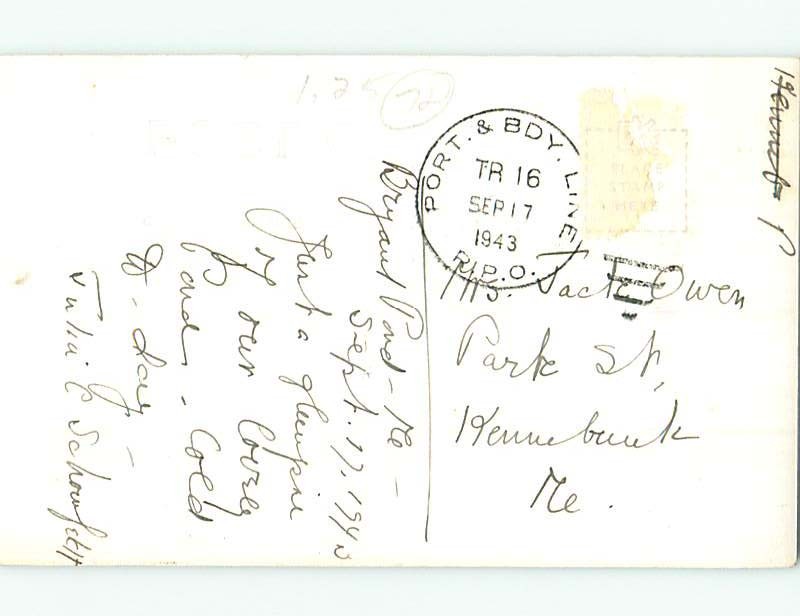 1.25
PORT. & BDY. LINE
TR 16
SEP 17
1943
R.P.O.
PLACE
STAMP
HERE
Bryant Pond - Me -
Sept. 17, 1943
Just a glimpse
of our lovely
Pond. - Cold
to-day -
Julia C
Mrs. Jack Owen
Park St,
Kennebunk
Me.